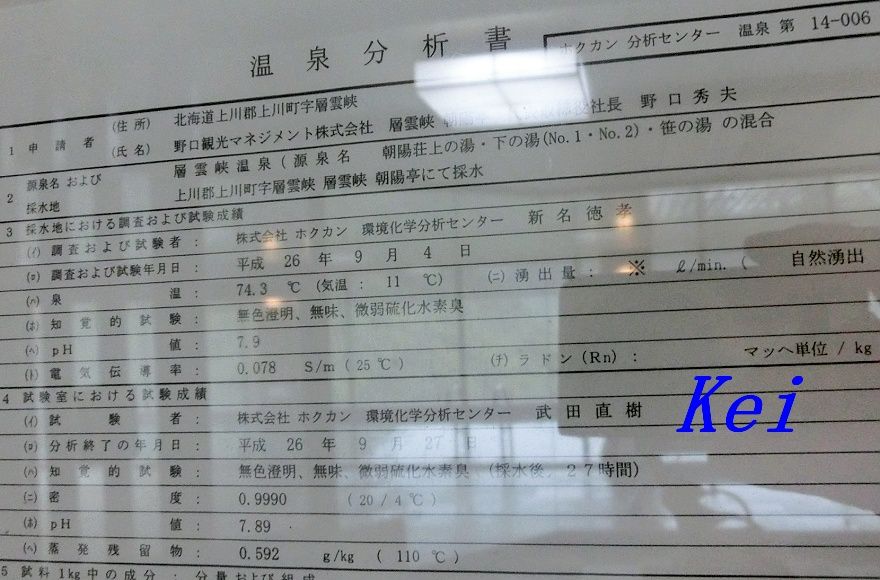 温泉分析書
ホクカン 分析センター 温泉 第 14-006
1 申請者 (住所) 北海道上川郡上川町字層雲峡
(氏名) 野口観光マネジメント株式会社 層雲峡 朝陽亭 社長 野口秀夫
2 源泉名および採水地 層雲峡温泉(源泉名 朝陽荘上の湯・下の湯(No.1・No.2)・笹の湯 の混合
上川郡上川町字層雲峡 層雲峡 朝陽亭にて採水
3 採水地における調査および試験成績
(イ) 調査および試験者 : 株式会社 ホクカン 環境化学分析センター 新名徳孝
(ロ) 調査および試験年月日 : 平成 26 年 9 月 4 日
(ハ) 泉温 : 74.3 ℃ (気温 : 11 ℃) (ニ) 湧出量 : ※ ℓ/min. ( 自然湧出
(ホ) 知覚的試験 : 無色澄明、無味、微弱硫化水素臭
(ヘ) pH値 : 7.9
(ト) 電気伝導率 : 0.078 S/m (25℃) (チ) ラドン(Rn) : マッヘ単位/kg
4 試験室における試験成績
(イ) 試験者 : 株式会社 ホクカン 環境化学分析センター 武田直樹
(ロ) 分析終了の年月日 : 平成 26 年 9 月 27 日
(ハ) 知覚的試験 : 無色澄明、無味、微弱硫化水素臭 (採水後, 27時間)
(ニ) 密度 : 0.9990 (20/4℃)
(ホ) pH値 : 7.89
(ヘ) 蒸発残留物 : 0.592 g/kg (110℃)
5 試料1kg中の成分 : 分量および組成
Kei